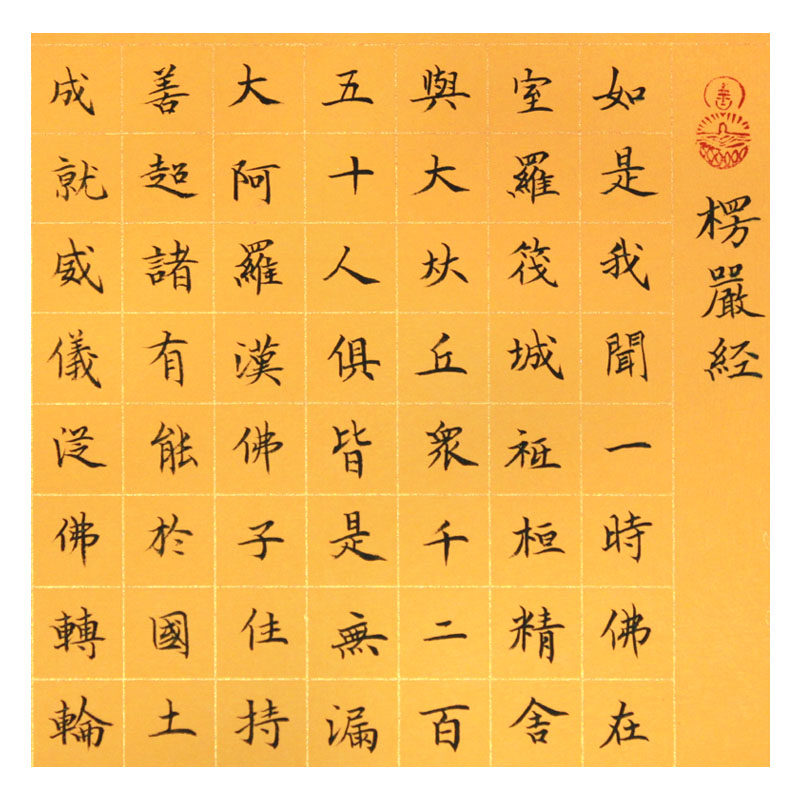 楞嚴經
如是我聞一時佛在
室羅筏城祗桓精舍
與大比丘眾千二百
五十人俱皆是無漏
大阿羅漢佛子住持
善超諸有能於國土
成就威儀從佛轉輪